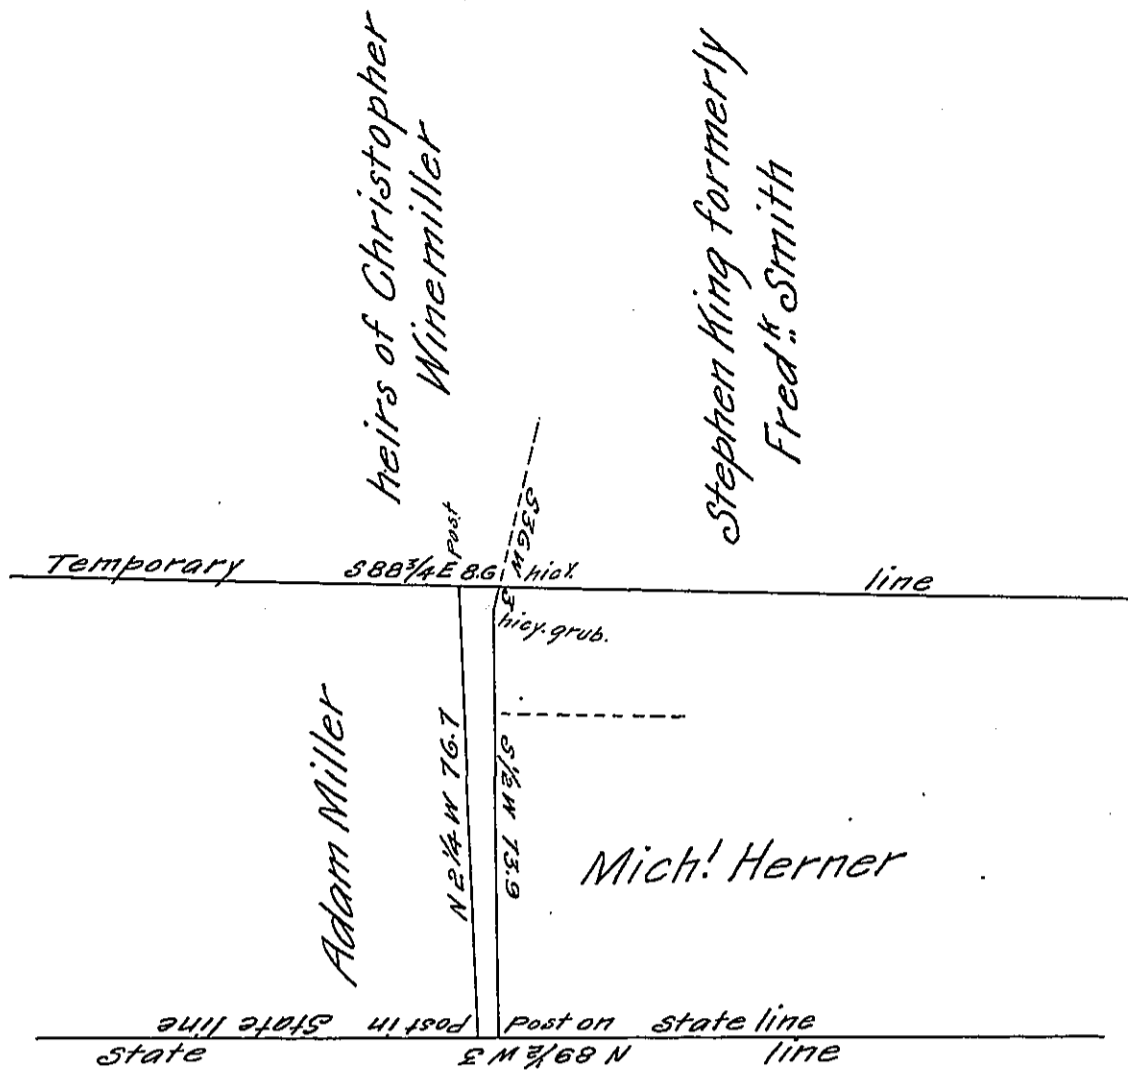 heirs of Christopher
Winemiller
Stephen King formerly
Fred.k Smith
Post
S36W
Temporary
S88¾E 8.6
hicy.
line
3
hicy. grub.
Adam Miller
N2¼W 76.7
S½W 73.9
Mich.l Herner
Post in State line
Post on state line
State
N 89½ W 3
line